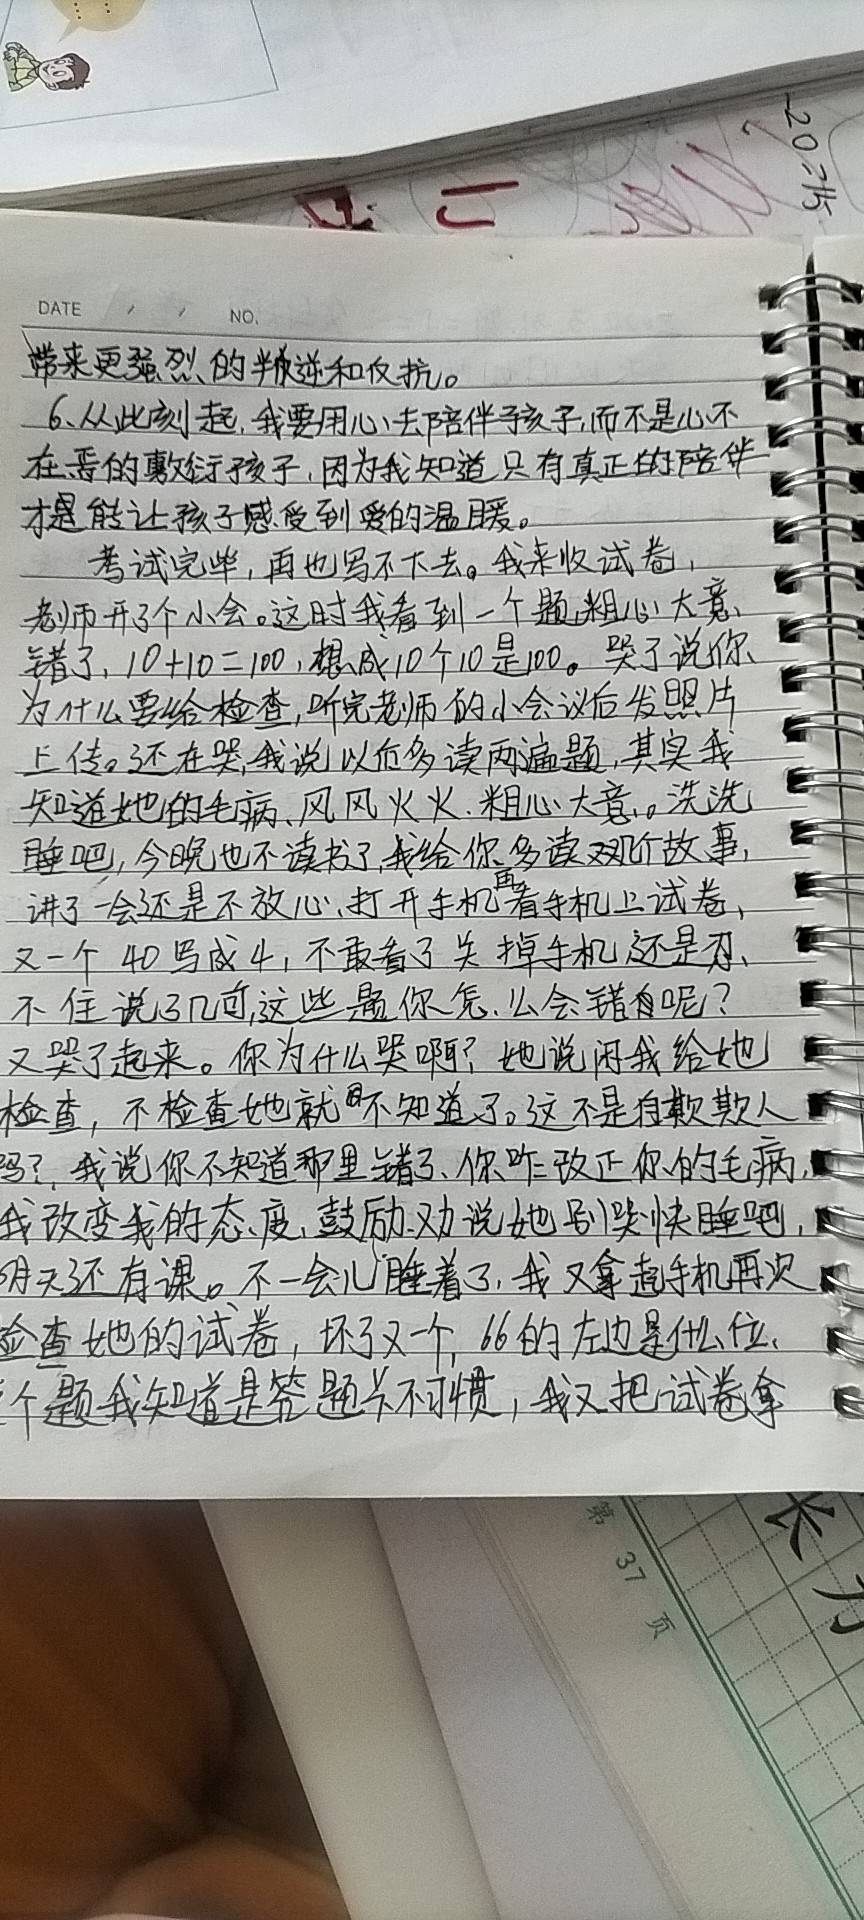 -20225
DATE / / NO.
带来更强烈的叛逆和反抗。
6、从此刻起,我要用心去陪伴孩子,而不是心不
在焉的敷衍孩子,因为我知道只有真正的陪伴
才是能让孩子感受到爱的温暖。
考试完毕,再也写不下去。我来收试卷,
老师开了个小会。这时我看到一个题,粗心大意、
错了,10+10=100,想成10个10是100。哭了说你
为什么要给检查,听完老师的小会议后发照片
上传。还在哭,我说以后多读两遍题,其实我
知道她的毛病、风风火火、粗心大意。洗洗
睡吧,今晚也不读书了,我给你多读两个故事,
讲了一会还是不放心、打开手机再看手机上试卷、
又一个40写成4,不敢看了关掉手机还是忍、
不住说了几句,这些题你怎么会错有呢?
又哭了起来。你为什么哭啊?她说闲我给她
检查,不检查她就不知道了。这不是自欺欺人
吗?我说你不知道那里错了、你咋改正你的毛病,
我改变我的态度,鼓励、劝说她别哭快睡吧,
明天还有课。不一会儿睡着了,我又拿起手机再次
检查她的试卷,坏了又一个,66的左边是什么位、
个题我知道是答题关不习惯,我又把试卷拿
第 37 页
米
力